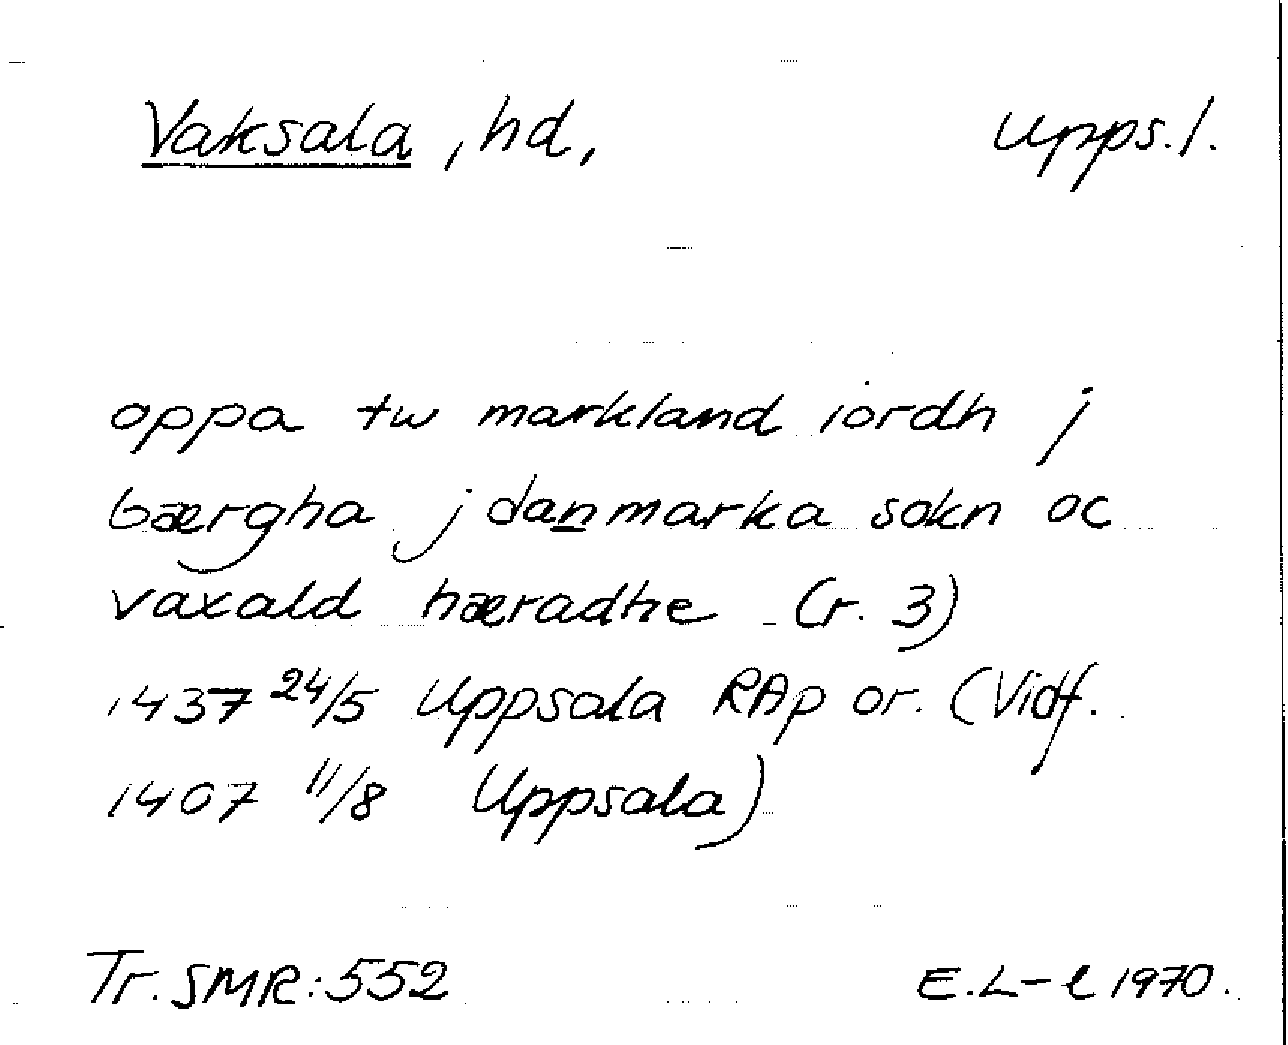 Vaksala, hd, Upps.l.
oppa tw markland iordh j
bærgha j danmarka sokn oc
vaxald hæradhe (r. 3)
1437 24/5 Uppsala RAp or. (Vidf.
1407 11/8 Uppsala)
Tr. SMR: 552 E.L-l 1970.